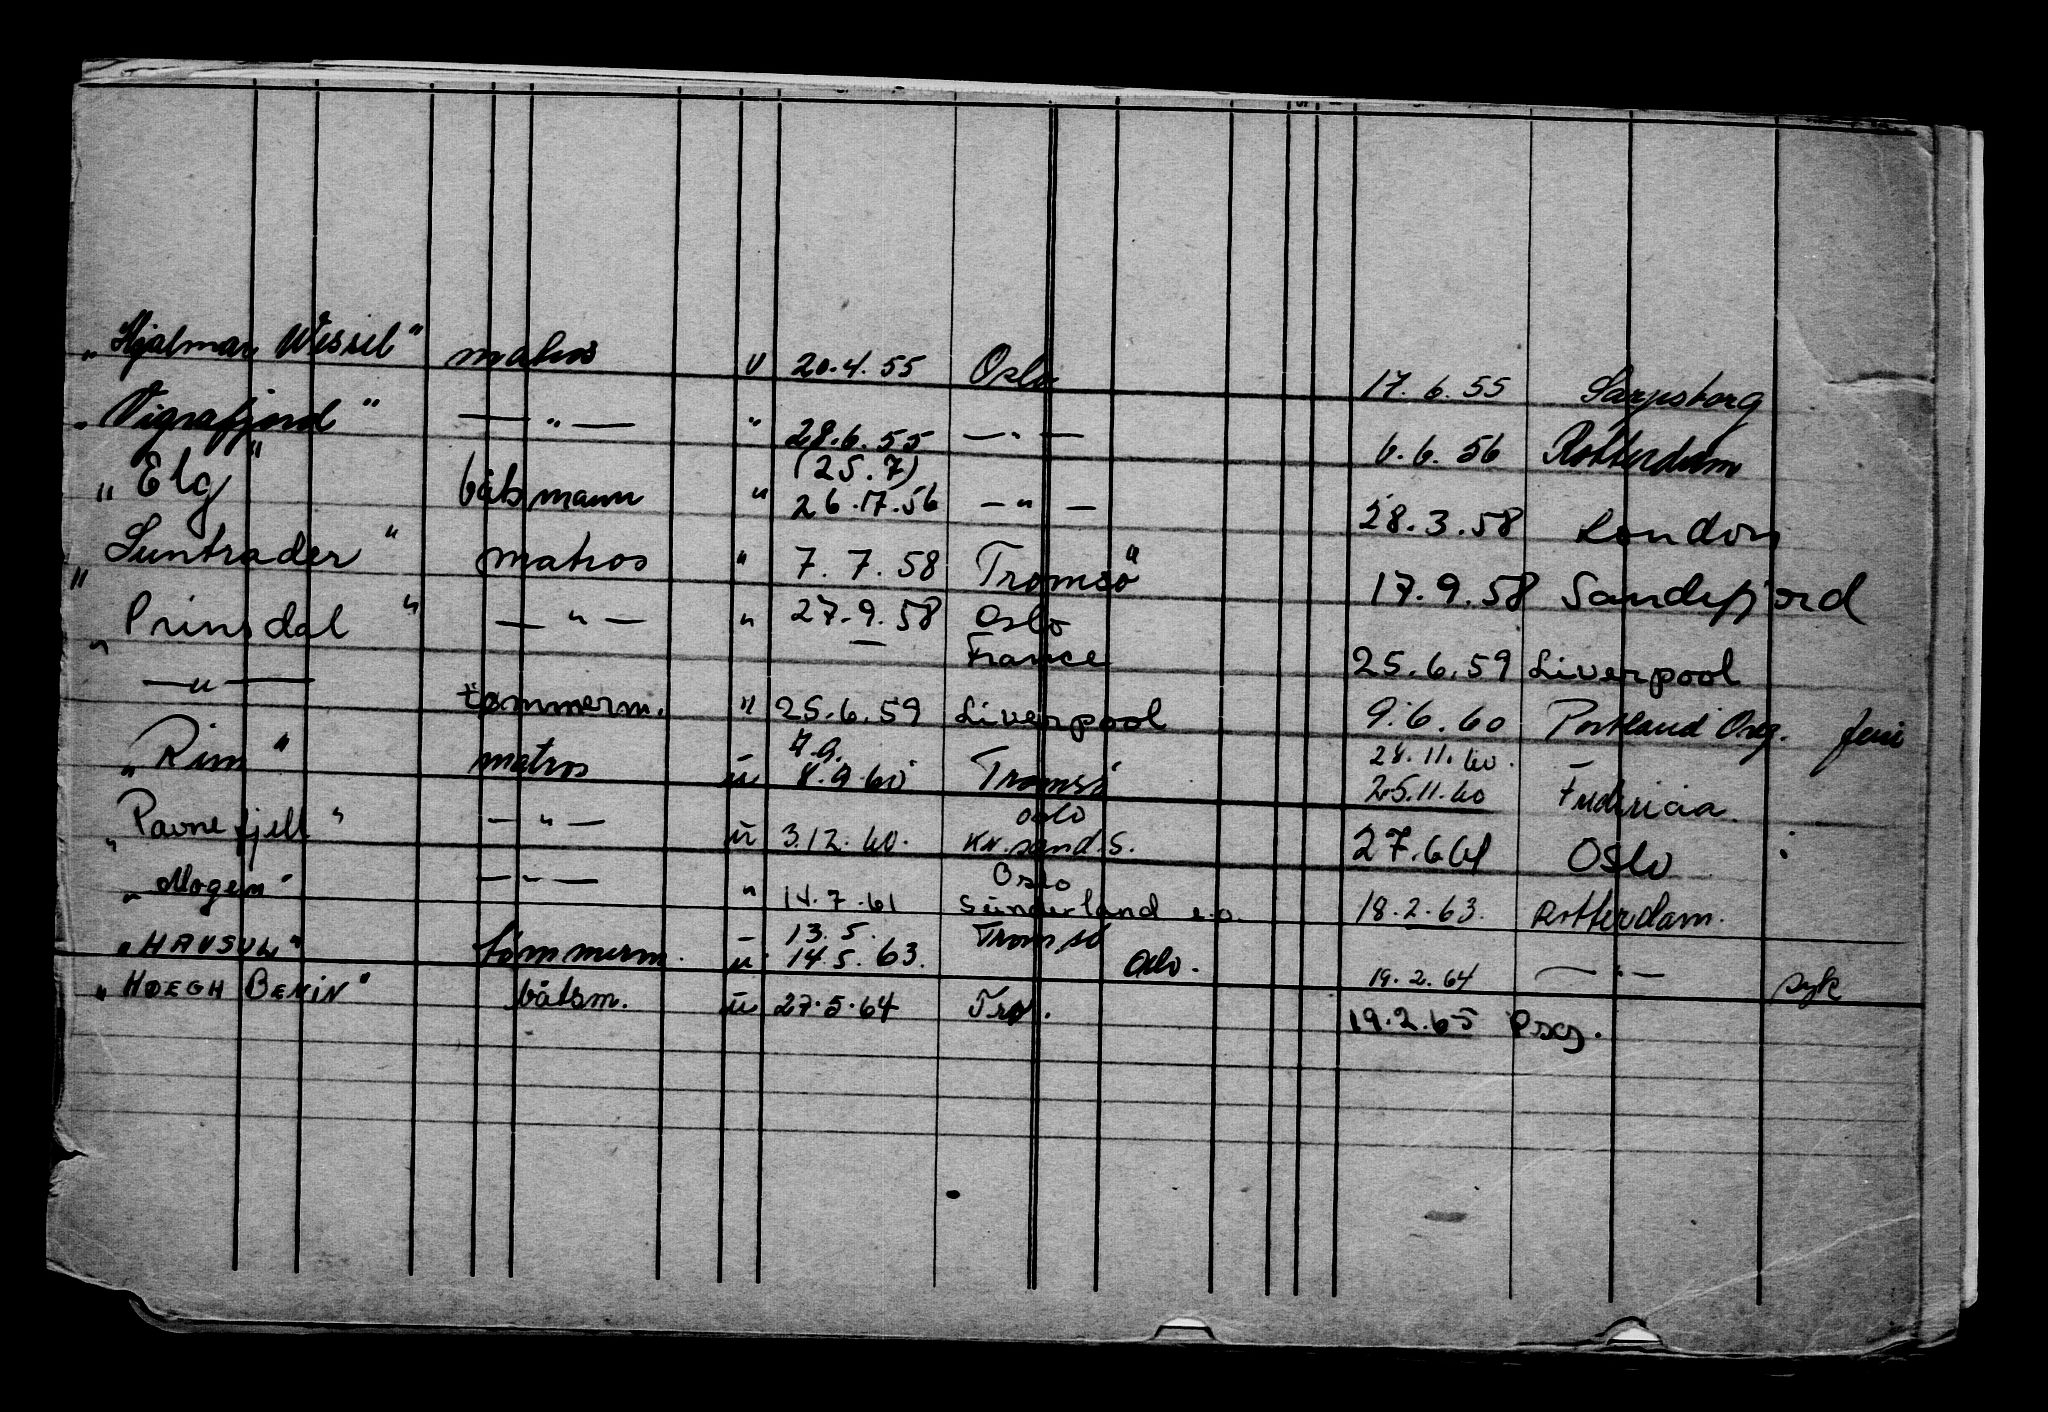 „Hjalmar Wessel" matros u 20.4.55 Oslo 17.6.55 Sarpsborg
„Vigrafjord" — " — " 28.6.55 — " — 6.6.56 Rotterdam
(25.7)
„Elg" båtsmann " 26.17.56 — " — 28.3.58 London
„Suntrader" matros " 7.7.58 Tromsö 17.9.58 Sandefjord
„Prinsdal" — " — " 27.9.58 Oslo
— France 25.6.59 Liverpool
— " — tømmerm. " 25.6.59 Liverpool 9.6.60 Portland Oreg.
7.9. 28.11.60. —
„Rim" matros ü 8.9.60 Tromsö 25.11.60 Fredericia.
Oslo
„Ravnefjell" — " — ü 3.12.60. Kr.sand.S. 27.6.61 Oslo
Oslo
„Mogen" — " — " 14.7.61 Sünderland e.o. 18.2.63. Rotterdam.
— 13.5. Tromsö
„HAVSUL" tömmerm. ü 14.5.63. Oslo. 19.2.64 — " — syk
„HØEGH BENIN" båtsm. ü 27.5.64 Tro. 19.2.65